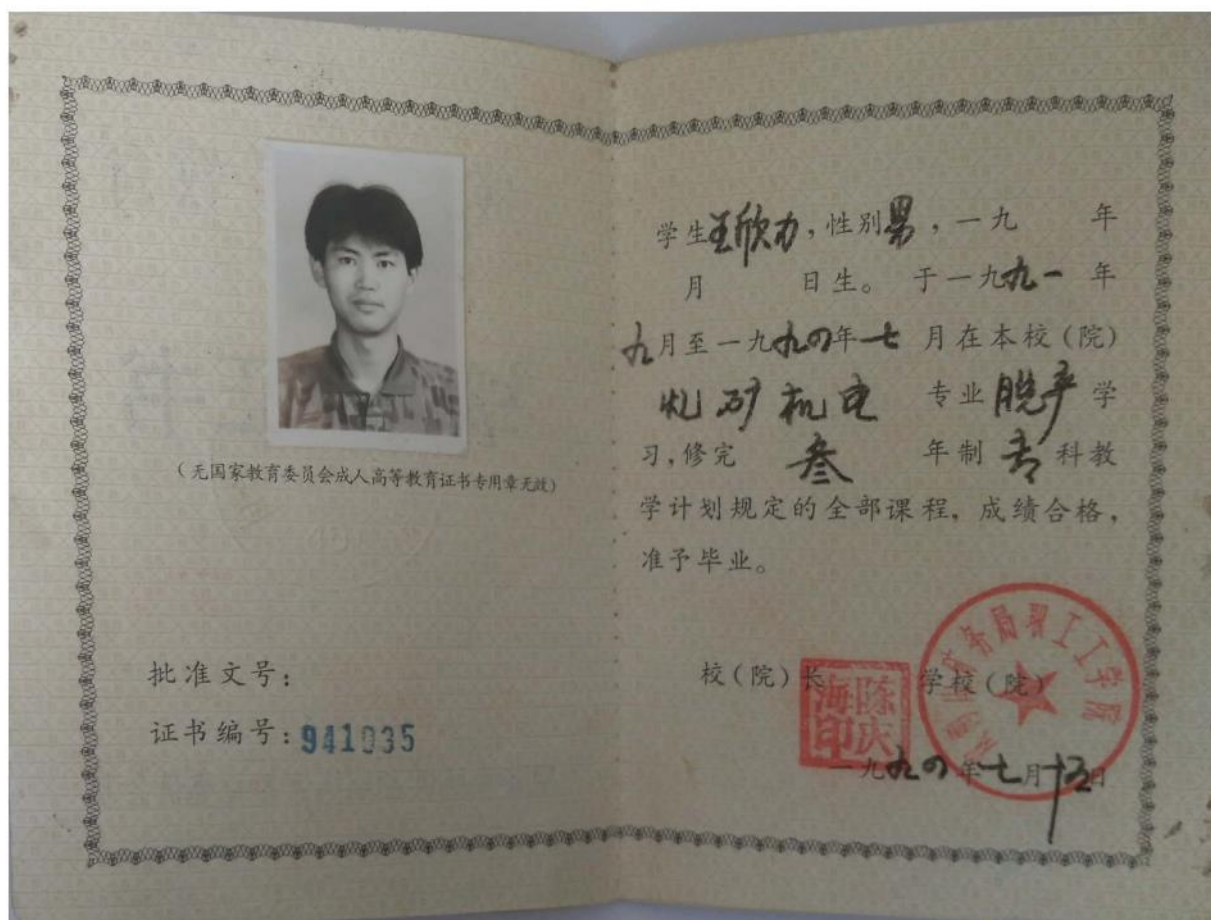 (无国家教育委员会成人高等教育证书专用章无效)
批准文号:
证书编号:941035
学生王欣力,性别男,一九 年
月 日生。于一九九一年
九月至一九九四年七月在本校(院)
机电 专业脱产学
习,修完 叁 年制专科教
学计划规定的全部课程,成绩合格,
准予毕业。
校(院)长 学校(院)
陈庆海印
矿务局职工工学院
一九九四年七月十五日